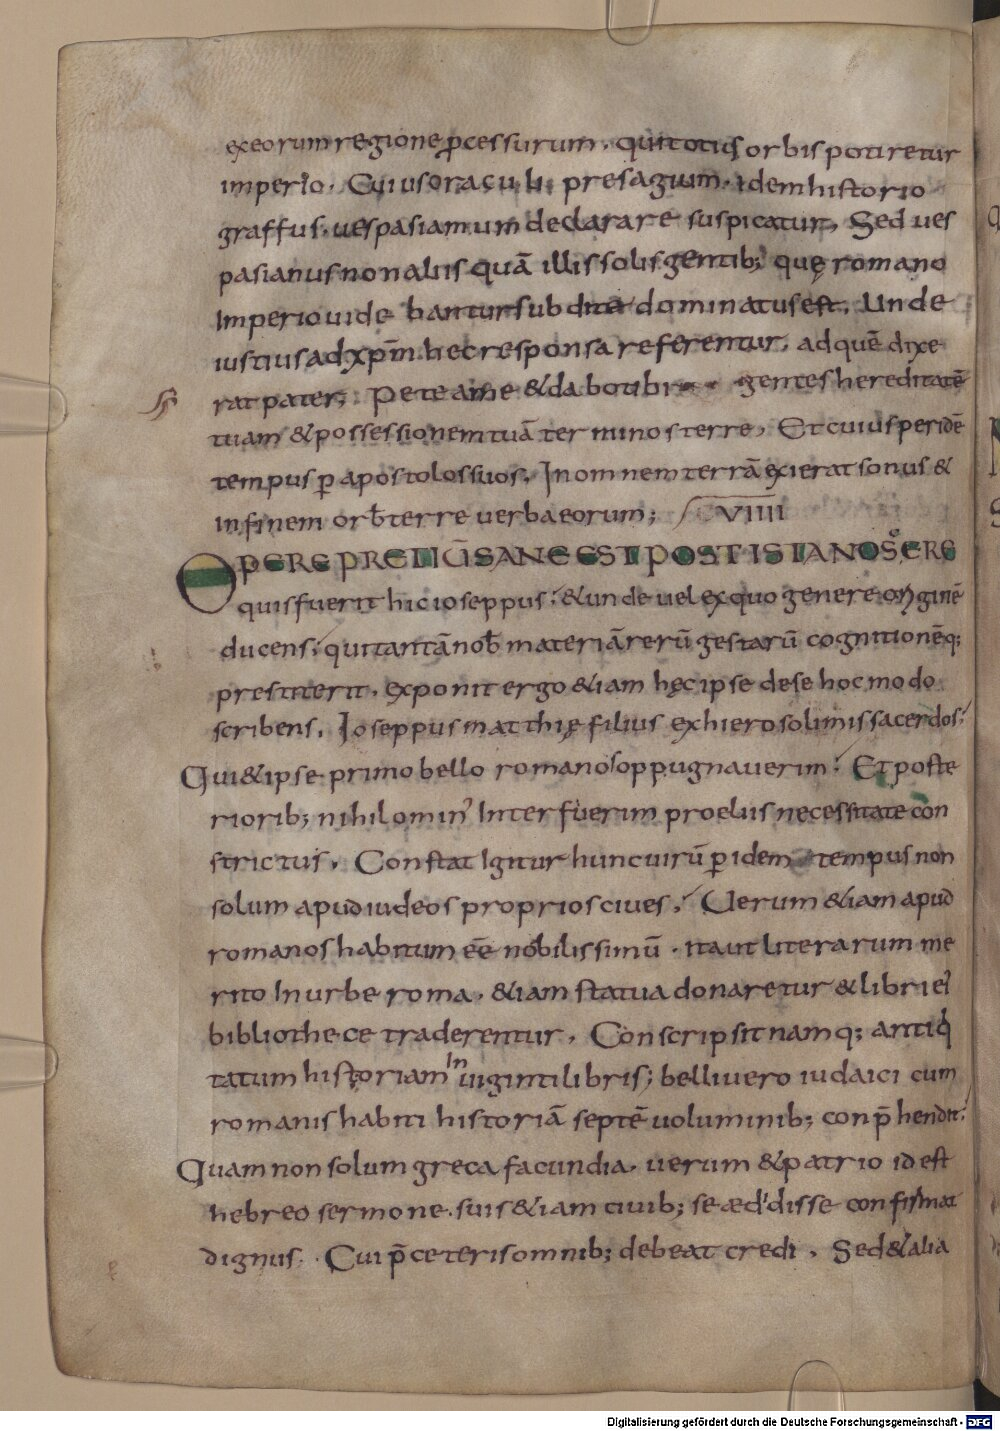 exeorum regione ꝓcessurum. qui totius orbis potiretur
imperio. Cuius oraculi presagium. idem historio
graffus. uespasianum declarare suspicatur. Sed ues
pasianus non aliis quā illis solis gentib; quę romano
Imperio uidebantur subdita dominatus est. Unde
iustius ad xp̄m hec responsa referentur. ad quē dixe
rat pater; Pete a me & dabo tibi gentes hereditatē
tuam & possessionem tuā terminos terre. Et cuius peridē
tempus ꝑ apostolos suos. In omnem terrā exierat sonus &
in finem orb̄ terre uerba eorum; VIIII
OPERE PRETIŪ SANE EST POST ISTA NOSCERE
quis fuerit hic ioseppus; & unde uel ex quo genere originē
ducens; qui tantā nob̄ materiā rerū gestarū cognitionēq;
prestiterit. exponit ergo &iam hęc ipse de se hoc modo
scribens. Ioseppus matthię filius ex hierosolimis sacerdos;
Qui & ipse primo bello romanos oppugnauerim; Et poste
riorib; nihilomin' Interfuerim proeliis necessitate con
strictus. Constat Igitur hunc uirū ꝑ idem tempus non
solum apud iudeos proprios ciues; Uerum &iam apud
romanos habitum eē nobilissimū. ita ut literarum me
rito In urbe roma. &iam statua donaretur & libri ei'
bibliothece traderentur. Conscripsit namq; antiq
tatum historiam In uiginti libris; belli uero iudaici cum
romanis habiti historiā septē uoluminib; conp̄hendit;
Quam non solum greca facundia. uerum & patrio id est
hebreo sermone. suis &iam ciuib; se ædidisse confirmat
dignus. Cui p̄ceteris omnib; debeat credi. Sed & alia
Digitalisierung gefördert durch die Deutsche Forschungsgemeinschaft - DFG